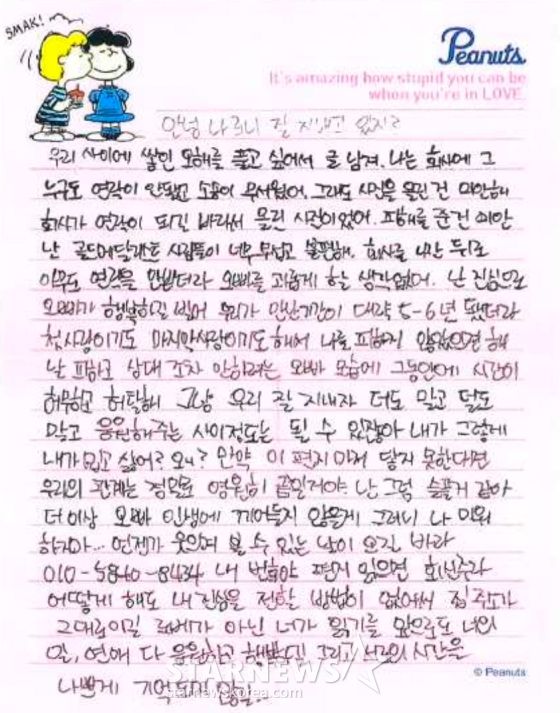 SMAK!
Peanuts
It's amazing how stupid you can be
when you're in LOVE.
안녕 나 잘 지내고 있지?
우리 사이에 쌓인 오해를 풀고 싶어서 글 남겨. 나는 회사에 그
누구도 연락이 안됐고 소송이 무서웠어. 그래도 사진을 올린 건 미안해
회사가 연락이 되길 바라서 올린 사진이었어. 피해를 준건 미안
난 골드메달리스트 사람들이 너무 무섭고 불편해. 회사를 나간 뒤로
아무도 연락을 안받더라 오빠를 괴롭게 할 생각없어. 난 진심으로
오빠가 행복하길 빌어 우리가 만난기간이 대략 5-6년 됐더라
첫사랑이기도 마지막사랑이기도 해서 나를 피하지 않았으면 해
날 피하고 상대 조차 안하려는 오빠 모습에 그동안에 시간이
허무하고 허탈해 그냥 우리 잘 지내자 더도 말고 덜도
말고 응원해주는 사이정도는 될 수 있잖아 내가 그렇게
내가 밉고 싫어? 왜? 만약 이 편지마저 닿지 못한다면
우리의 관계는 정말로 영원히 끝일거야. 난 그럼 슬플거 같아
더 이상 오빠 인생에 끼어들지 않을게 그러니 나 미워
하지마... 언젠가 웃으며 볼 수 있는 날이 오길 바라
010-5840-8434 내 번호야 편지 읽으면 회신주라
어떻게 해도 내 진심을 전할 방법이 없어서 집 주소가
그대로이길 아닌 너가 읽기를 앞으로도 너의
일, 연애 다 응원하고 그리고 시간을
나쁘게 기억하지 않을
© Peanuts
STARNEWS
starnewskorea.com